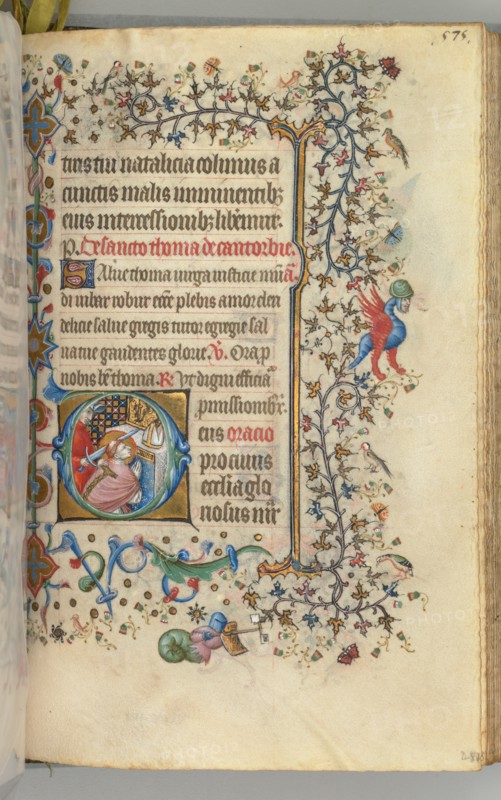 575
tuis tui natalicia colimus a
cunctis malis imminentibꝫ
eius intercessionibꝫ liberemur.
p. De sancto thoma de cantorbie.
Salue thoma uirga iusticie mundi
iubar robur ecc̄e plebis amor cleri
delicie salue gregis tutor egregie sal
ua tue gaudentes glorie. V̄. Ora p
nobis bt̄e thoma. R̄. Vt digni efficia
pmissionibꝫ.
eus oracio
pro cuius
ecclīa glo
riosus